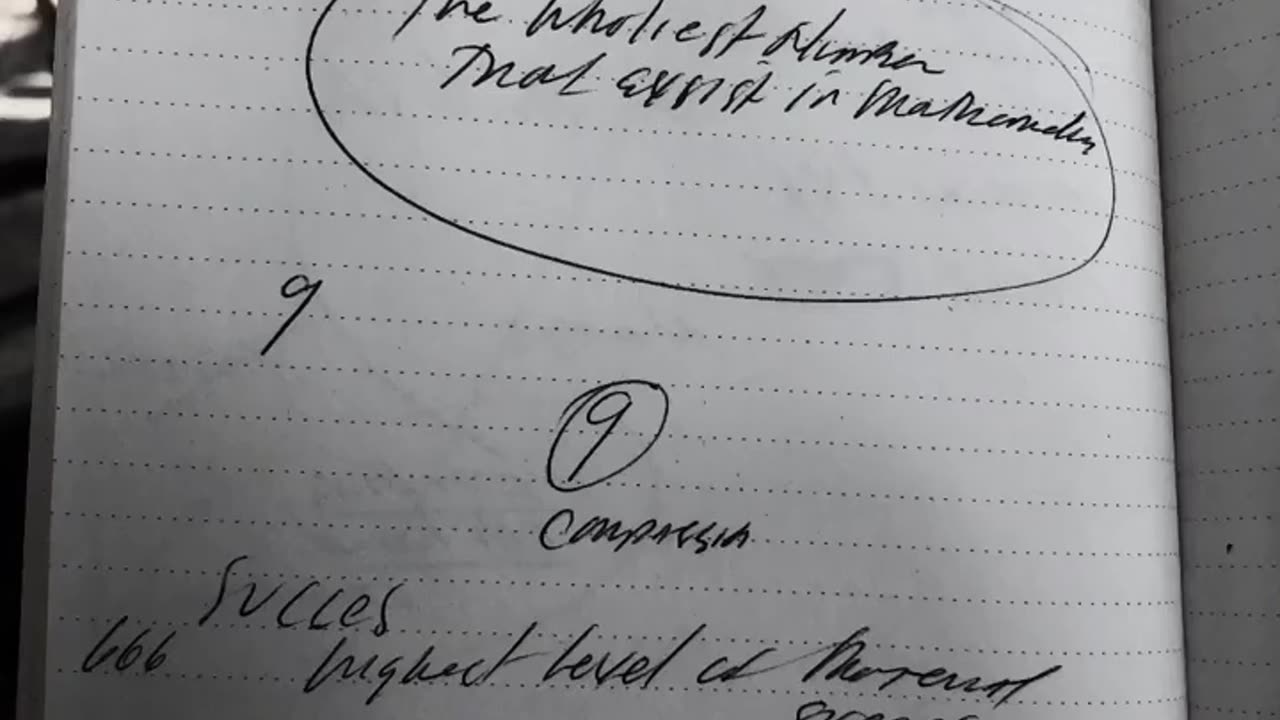 The wholiest Number
That exsist in mathematics
9
9
Compression
Succes
666 highest level of